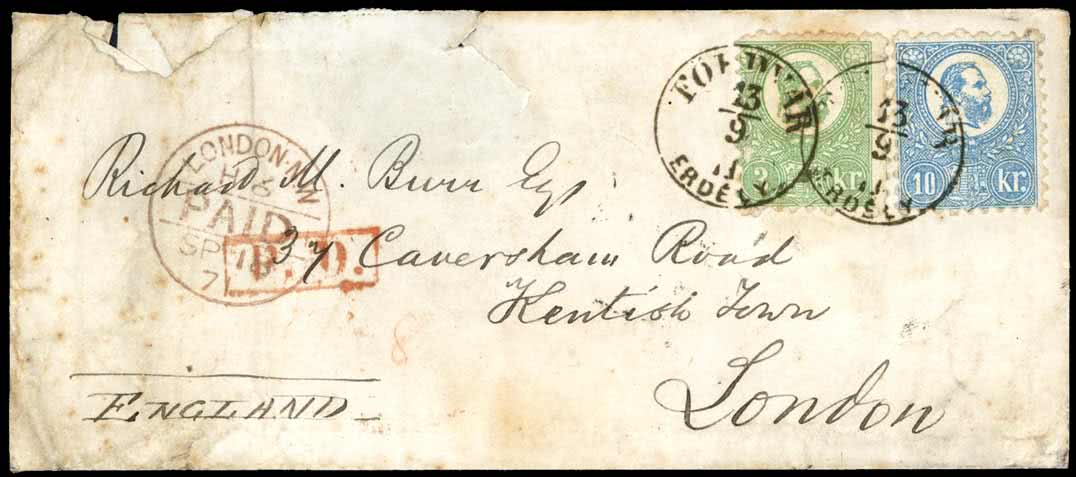 FÖLDVÁR
13
9
ERDÉLY
13
9
ERDÉLY
3 kr.
10 kr.
LONDON·N.W
PAID
SP 16
71
P.D.
Richard M. Burr Esq
37 Caversham Road
Kentish Town
London
8
ENGLAND